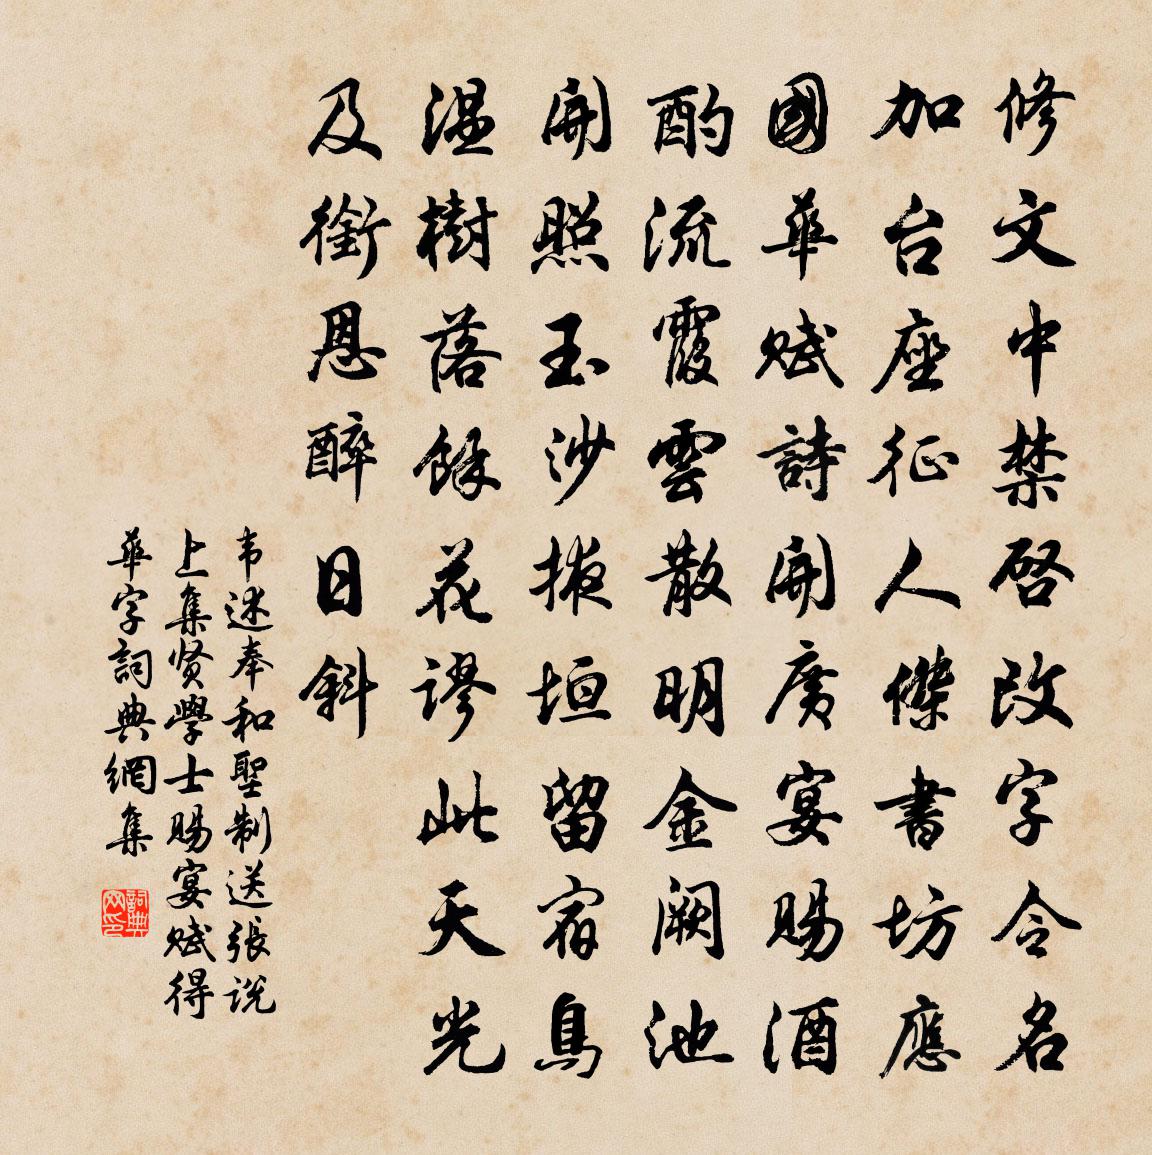 修文中禁啓改字令名
加台座征人傑書坊應
國華賦詩開廣宴賜酒
酌流霞雲散明金闕池
開照玉沙掖垣留宿鳥
温樹落餘花謬此天光
及銜恩醉日斜
韦述奉和聖制送張说
上集贤學士賜宴赋得
華字詞典網集
詞典网印